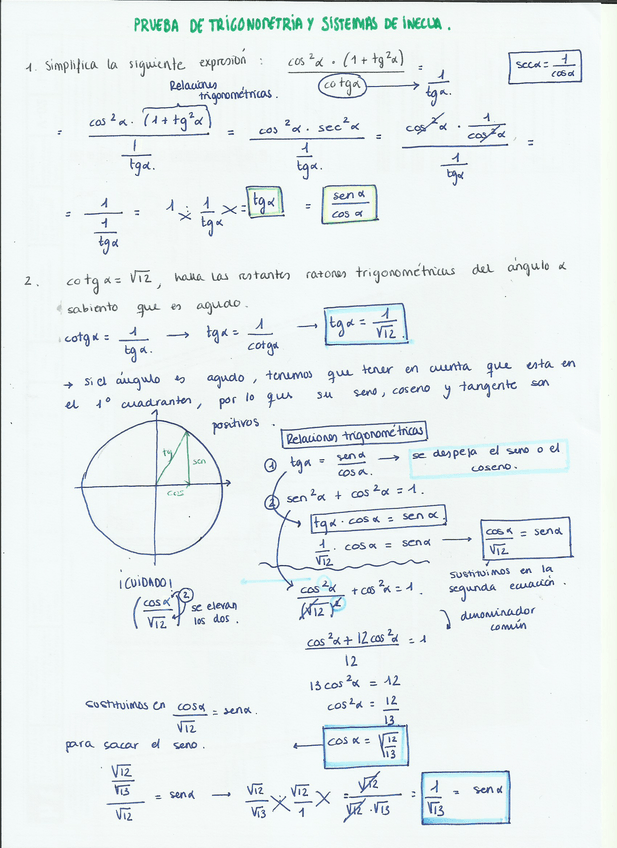 PRUEBA DE TRIGONOMETRIA Y SISTEMAS DE INECUA.
1. Simplifica la siguiente expresión: cos²α · (1 + tg²α) / cotgα = 1/tgα. secα = 1/cosα
Relaciones trigonométricas.
= cos²α · (1 + tg²α) / (1/tgα.) = cos²α · sec²α / (1/tgα) = cos²α · 1/cos²α / (1/tgα) =
= 1 / (1/tgα) = 1 : 1/tgα = tgα = senα/cosα
2. cotgα = √12, halla las restantes razones trigonométricas del ángulo α
sabiento que es agudo.
cotgα = 1/tgα. → tgα = 1/cotgα → tgα = 1/√12.
→ Si el ángulo es agudo, tenemos que tener en cuenta que esta en
el 1º cuadrantes, por lo que su seno, coseno y tangente son
positivos.
tg
sen
cos
Relaciones trigonométricas
① tgα = senα/cosα. → se despeja el seno o el
coseno.
② sen²α + cos²α = 1.
tgα · cosα = senα
1/√12 · cosα = senα → cosα/√12 = senα
sustituimos en la
segunda ecuación.
¡CUIDADO!
(cosα/√12)² se elevan
los dos.
cos²α/(√12)² + cos²α = 1.
denominador
común
cos²α + 12cos²α / 12 = 1
13cos²α = 12
cos²α = 12/13
cosα = √12/13
sustituimos en cosα/√12 = senα.
para sacar el seno.
√12/√13 / √12 = senα → √12/√13 : √12/1 = √12/√12·√13 = 1/√13 = senα